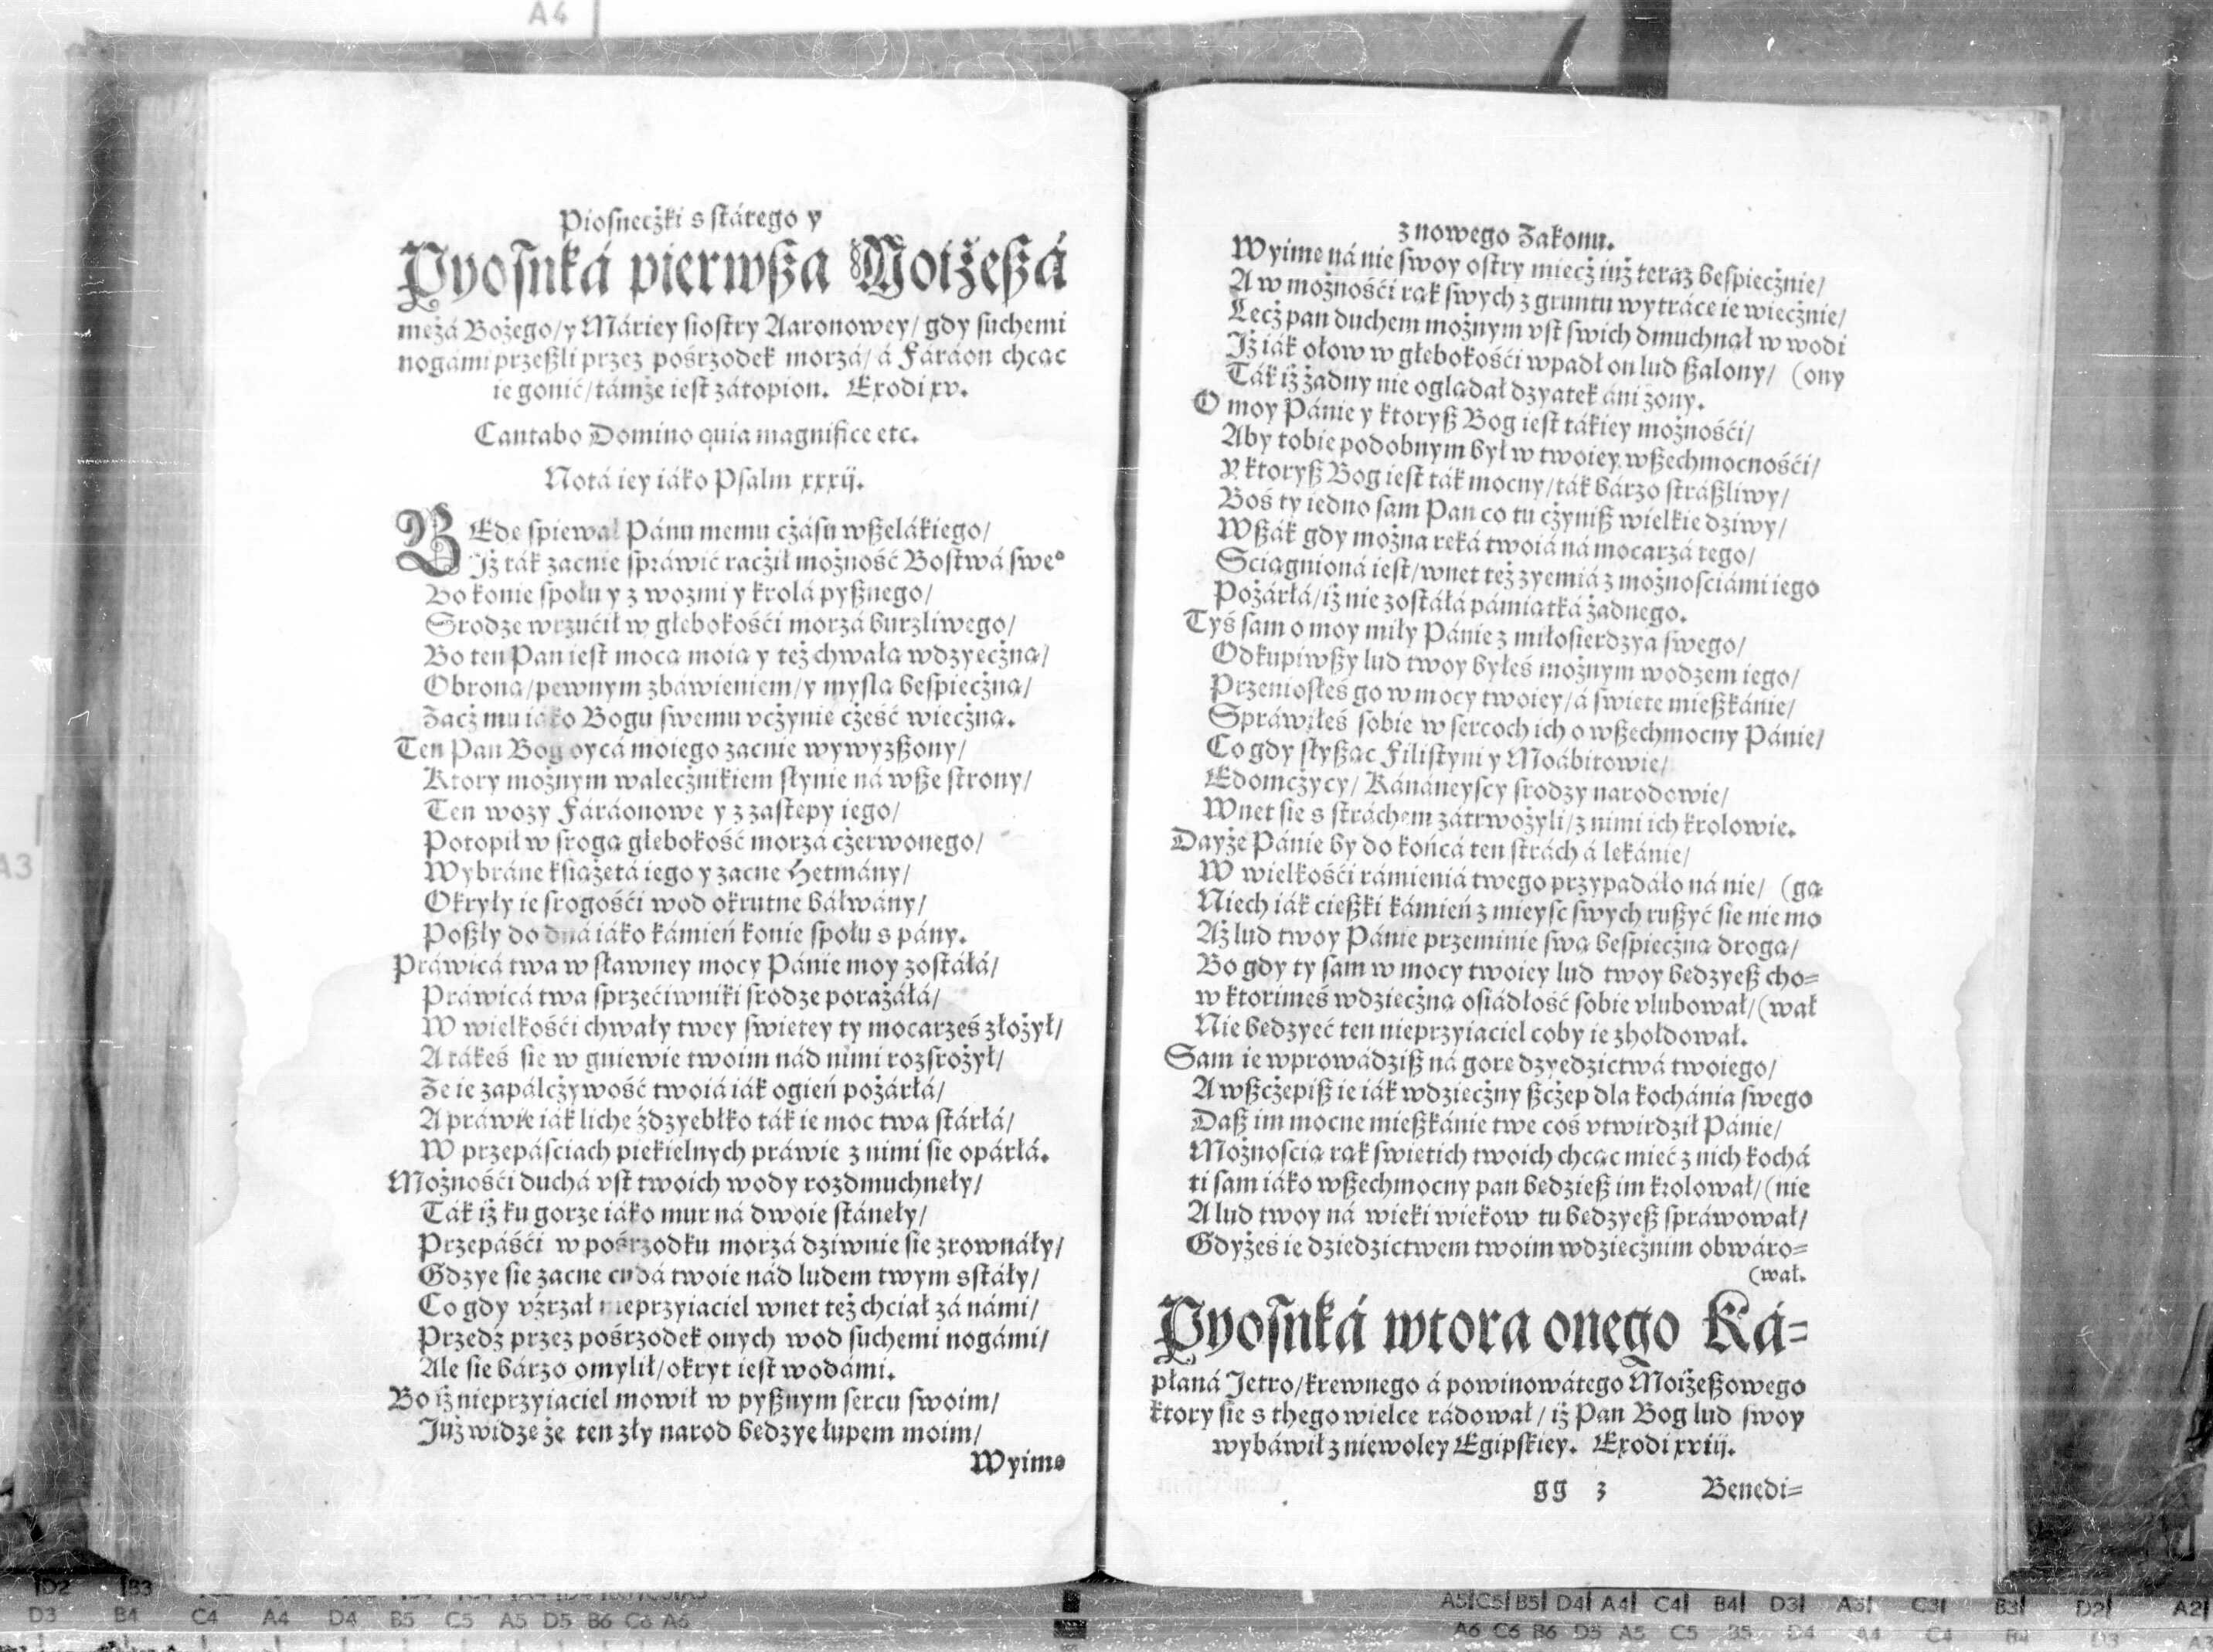 Piosnecżki s stárego y
Pyosnká pierwsza Moiżeszá
mężá Bożego/ y Máriey siostry Aaronowey/ gdy suchemi
nogámi przeszli przez pośrzodek morzá/ á Fáráon chcąc
ie gonić/ támże iest zátopion. Exodi xv.
Cantabo Domino quia magnifice etc.
Notá iey iáko Psalm xxxij.
BĘde spiewał Pánu memu cżásu wszelákiego/
Jż ták zacnie spráwić racżił możność Bostwá swe°
Bo konie społu y z wozmi y krolá pysznego/
Srodze wrzućił w głębokośći morzá burzliwego/
Bo ten Pan iest mocą moią y też chwałą wdzyecżną/
Obroną/ pewnym zbáwieniem/ y myslą bespiecżną/
Zacż mu iáko Bogu swemu vcżynię cżeść wiecżną.
Ten Pan Bog oycá moiego zacnie wywyższony/
Ktory możnym walecżnikiem słynie ná wsze strony/
Ten wozy Fáráonowe y z zastępy iego/
Potopił w srogą głębokość morzá cżerwonego/
Wybráne książętá iego y zacne Hetmány/
Okryły ie srogośći wod okrutne báłwány/
Poszły do dná iáko kámień konie społu s pány.
Práwicá twa w sławney mocy Pánie moy zostáłá/
Práwicá twa sprzećiwniki srodze porażáłá/
W wielkośći chwały twey świętey ty mocarześ złożył/
A tákeś sie w gniewie twoim nád nimi rozsrożył/
Że ie zapálcżywość twoiá iák ogień pożárłá/
A práwie iák liche źdzyebłko ták ie moc twa stárłá/
W przepáściach piekielnych práwie z nimi sie opárłá.
Możnośći duchá vst twoich wody rozdmuchnęły/
Ták iż ku gorze iáko mur ná dwoie stánęły/
Przepáśći w pośrzodku morzá dziwnie sie zrownáły/
Gdzye sie zacne cudá twoie nád ludem twym sstáły/
Co gdy vźrzał nieprzyiaciel wnet też chciał zá námi/
Przedz przez pośrzodek onych wod suchemi nogámi/
Ale sie bárzo omylił/ okryt iest wodámi.
Bo iż nieprzyiaciel mowił w pysznym sercu swoim/
Już widzę że ten zły narod będzye łupem moim/
Wyimę
z nowego Zakonu.
Wyimę ná nie swoy ostry miecż iuż teraz bespiecżnie/
A w możnośći rąk swych z gruntu wytrácę ie wiecżnie/
Lecż pan duchem możnym vst swich dmuchnął w wodi
Jż iák ołow w głębokośći wpadł on lud szalony/ (ony
Ták iż żadny nie oglądał dzyatek áni żony.
O moy Pánie y ktorysz Bog iest tákiey możnośći/
Aby tobie podobnym był w twoiey wszechmocnośći/
Y ktorysz Bog iest ták mocny/ ták bárzo strászliwy/
Boś ty iedno sam Pan co tu cżynisz wielkie dziwy/
Wszák gdy można ręká twoiá ná mocarzá tego/
Sciągnioná iest/ wnet też zyemiá z możnosciámi iego
Pożárłá/ iż nie zostáłá pámiątká żadnego.
Tyś sam o moy miły Pánie z miłosierdzya swego/
Odkupiwszy lud twoy byłeś możnym wodzem iego/
Przeniosłeś go w mocy twoiey/ á swięte mieszkánie/
Spráwiłeś sobie w sercoch ich o wszechmocny Pánie/
Co gdy słysząc Filistyni y Moábitowie/
Edomcżycy/ Kánáneyscy srodzy narodowie/
Wnet sie s stráchem zátrwożyli/ z nimi ich krolowie.
Dayże Pánie by do końcá ten strách á lękánie/
W wielkośći rámieniá twego przypadáło ná nie/ (gą
Niech iák cieszki kámień z mieysc swych ruszyć sie nie mo
Aż lud twoy Pánie przeminie swą bespiecżną drogą/
Bo gdy ty sam w mocy twoiey lud twoy będzyesz cho=
w ktorimeś wdziecżną osiádłość sobie vlubował/ (wał
Nie będzyeć ten nieprzyiaciel coby ie zhołdował.
Sam ie wprowádzisz ná gorę dzyedzictwá twoiego/
A wszcżepisz ie iák wdziecżny szcżep dla kochánia swego
Dasz im mocne mieszkánie twe coś vtwirdził Pánie/
Możnoscią rąk swiętich twoich chcąc mieć z nich kochá
ti sam iáko wszechmocny pan będziesz im krolował/ (nie
A lud twoy ná wieki wiekow tu będzyesz spráwował/
Gdyżeś ie dziedzictwem twoim wdziecżnim obwáro=
(wał.
Pyosnká wtora onego Ká=
płaná Jetro/ krewnego á powinowátego Moiżeszowego
ktory sie s thego wielce rádował/ iż Pan Bog lud swoy
wybáwił z niewoley Egipskiey. Exodi xviij.
gg 3 Benedi=